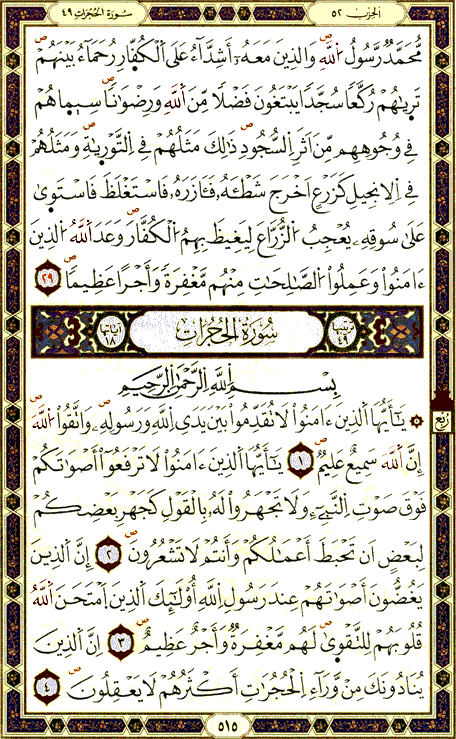 الحِزْبُ ٥٢
سُورَةُ الحُجُرَاتِ ٤٩
مُّحَمَّدٌ رَّسُولُ اُللَّهِ وَالذِينَ مَعَهُۥٓ أَشِدَّآءُ عَلَى اَلْكُفّ۪ارِ رُحَمَآءُ بَيْنَهُمْ
تَر۪يٰهُمْ رُكَّعاٗ سُجَّداٗ يَبْتَغُونَ فَضْلاٗ مِّنَ اَللَّهِ وَرِضْوَٰناٗ سِيم۪اهُمْ
فِے وُجُوهِهِم مِّنَ اَثَرِ اِلسُّجُودِ ذَٰلِكَ مَثَلُهُمْ فِے اِلتَّوْر۪يٰةِ وَمَثَلُهُمْ
فِے اِلِانجِيلِ كَزَرْعٍ اَخْرَجَ شَطْـَٔهُۥ فَـَٔازَرَهُۥ فَاسْتَغْلَظَ فَاسْتَو۪يٰ
عَلَىٰ سُوقِهِۦ يُعْجِبُ اُلزُّرَّاعَ لِيَغِيظَ بِهِمُ اُلْكُفَّارَ وَعَدَ اَللَّهُ اُلذِينَ
ءَامَنُواْ وَعَمِلُواْ اُلصَّٰلِحَٰتِ مِنْهُم مَّغْفِرَةٗ وَأَجْراً عَظِيماٗ ٢٩
تَرْتِيبُهَا ٤٩ سُورَةُ الحُجُرَاتِ آيَاتُهَا ١٨
بِسْمِ اِللَّهِ اِلرَّحْمَٰنِ اِلرَّحِيمِ
۞ يَٰٓأَيُّهَا اَلذِينَ ءَامَنُواْ لَا تُقَدِّمُواْ بَيْنَ يَدَيِ اِللَّهِ وَرَسُولِهِۦ وَاتَّقُواْ اُللَّهَ
رُبُع
إِنَّ اَللَّهَ سَمِيعٌ عَلِيمٞ ١ يَٰٓأَيُّهَا اَلذِينَ ءَامَنُواْ لَا تَرْفَعُوٓاْ أَصْوَٰتَكُمْ
فَوْقَ صَوْتِ اِلنَّبِےٓءِ وَلَا تَجْهَرُواْ لَهُۥ بِالْقَوْلِ كَجَهْرِ بَعْضِكُمْ
لِبَعْضٍ اَن تَحْبَطَ أَعْمَٰلُكُمْ وَأَنتُمْ لَا تَشْعُرُونَ ٢ إِنَّ اَلذِينَ
يَغُضُّونَ أَصْوَٰتَهُمْ عِندَ رَسُولِ اِللَّهِ أُوْلَٰٓئِكَ اَلذِينَ اَمْتَحَنَ اَللَّهُ
قُلُوبَهُمْ لِلتَّقْو۪يٰ لَهُم مَّغْفِرَةٞ وَأَجْرٌ عَظِيمٌ ٣ اِنَّ اَلذِينَ
يُنَادُونَكَ مِنْ وَّرَآءِ اِلْحُجُرَٰتِ أَكْثَرُهُمْ لَا يَعْقِلُونَ ٤
٥١٥